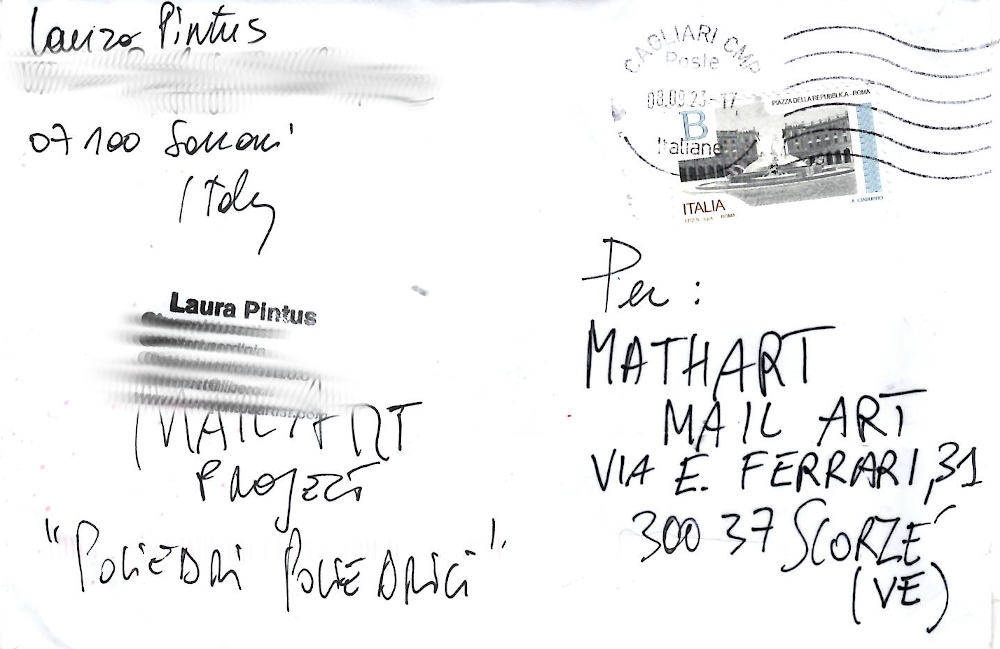 Laura Pintus
07100 Sassari
Italy
Laura Pintus
MAIL ART
PROJECT
"POLIEDRI POLIEDRICI".
CAGLIARI CMP
Poste
08.09.23-17
Italiane
PIAZZA DELLA REPUBBLICA - ROMA
B
ITALIA
Per:
MATHART
MAIL ART
VIA E. FERRARI, 31
30037 SCORZÉ
(VE)